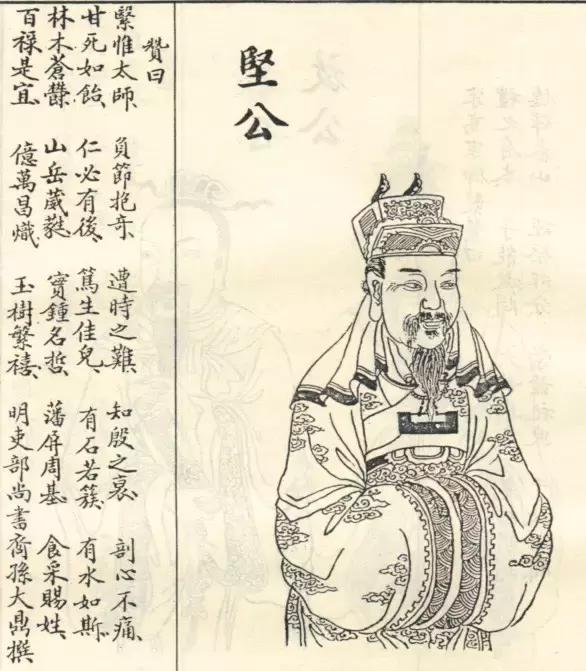 堅公
贊曰
繄惟太師、負節抱奇、遭時之難、知殷之衰、剖心不痛、
甘死如飴、仁必有後、篤生佳兒、有石若簇、有水如斯、
林木蒼欝、山岳葳蕤、實鍾名哲、藩屏周基、食采賜姓、
百祿是宜、億萬昌熾、玉樹繁禧、明吏部尚書齊孫大鼎撰